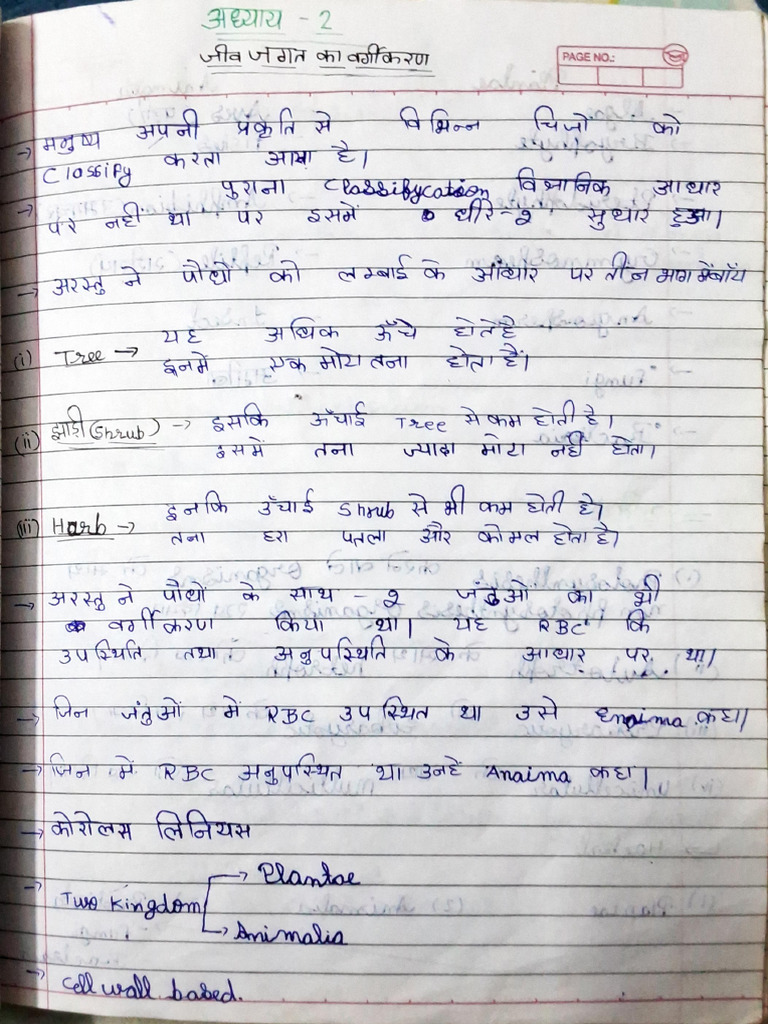 अध्याय - 2
जीव जगत का वर्गीकरण
PAGE NO.:
→ मनुष्य अपनी प्रकृति से विभिन्न चिजों को
Classify करता आया है।
→ पुराना Classifycation विज्ञानिक आधार
पर नही था पर इसमें धीरे-2 सुधार हुआ।
→ अरस्तु ने पौधों को लम्बाई के आधार पर तीन भाग में बाँटा
(i) Tree → यह अधिक ऊँचे होते है
इनमें एक मोटा तना होता है।
(ii) झाड़ी (Shrub) → इसकि ऊँचाई Tree से कम होती है।
इसमें तना ज्यादा मोटा नही होता।
(iii) Harb → इनकि ऊँचाई Shrub से भी कम होती है।
तना हरा पतला और कोमल होता है।
→ अरस्तु ने पौधों के साथ-2 जंतुओ का भी
वर्गीकरण किया था। यह RBC कि
उपस्थिति तथा अनुपस्थिति के आधार पर था।
→ जिन जंतुओं में RBC उपस्थित था उसे Enaima कहा।
→ जिन में RBC अनुपस्थित था उनहें Anaima कहा।
→ कोरोलस लिनियस
→ Two Kingdom → Plantae
→ Animalia
→ Cell wall based.